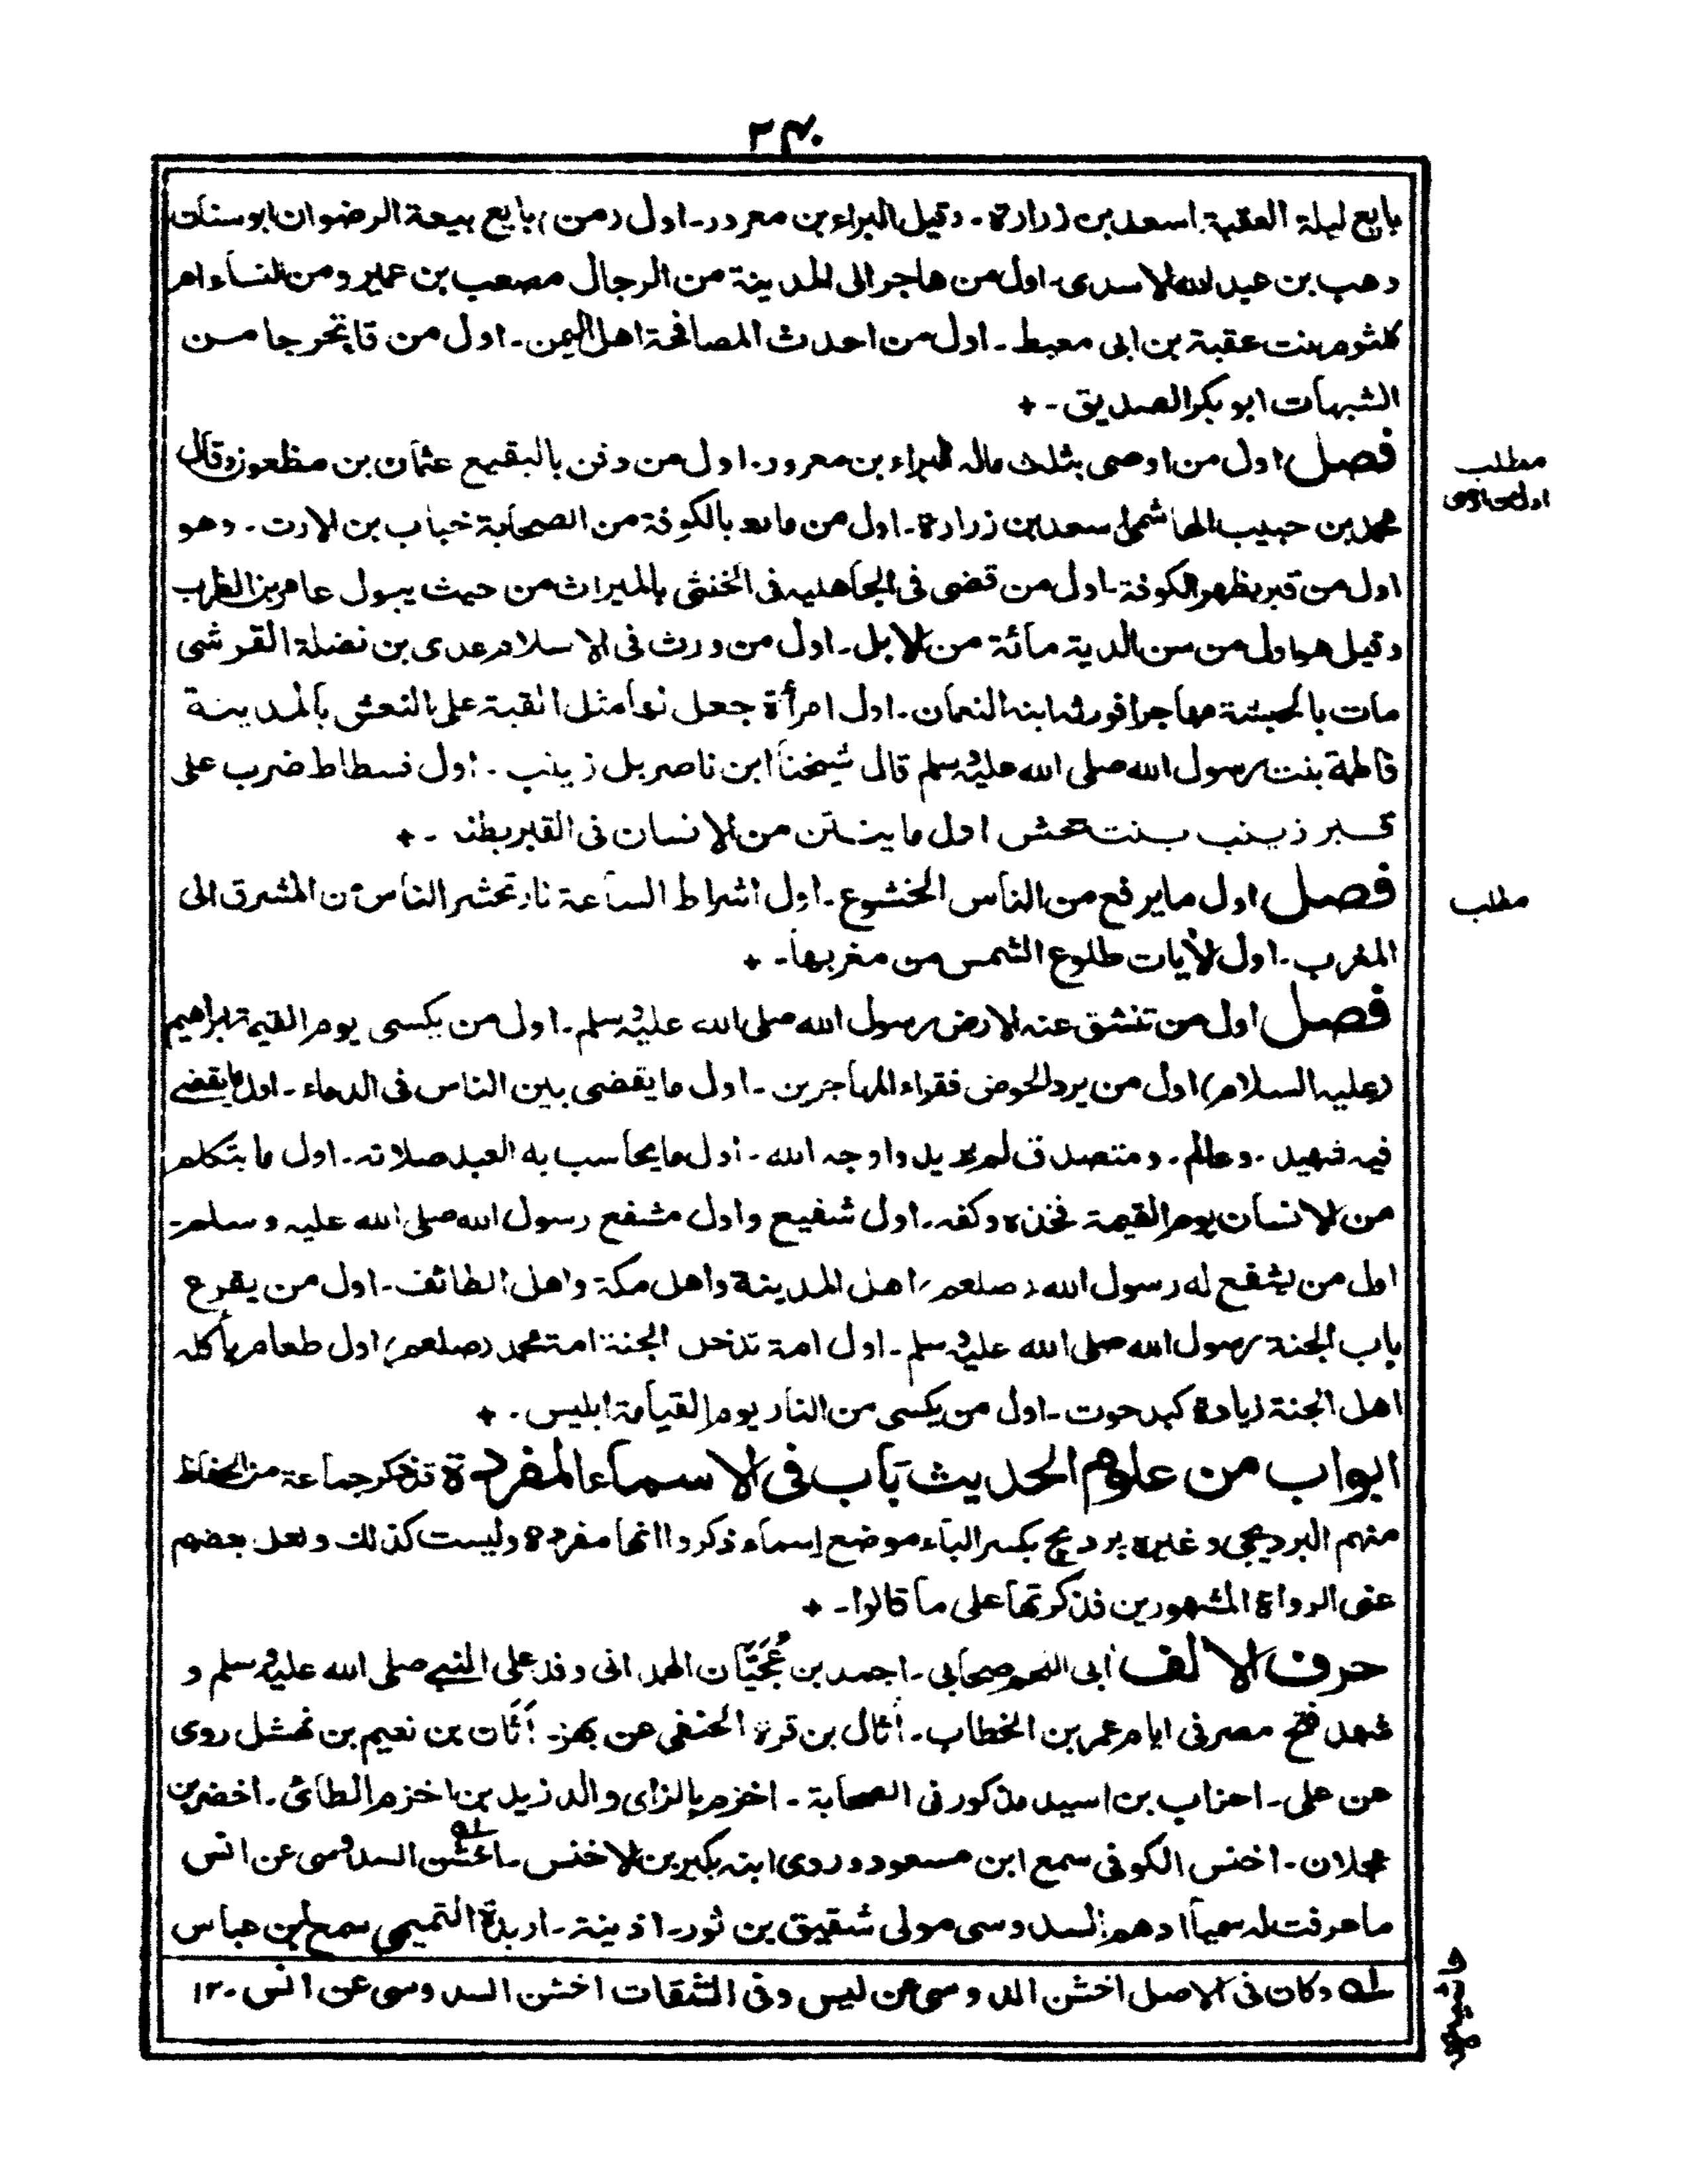 ٢٤٠
بايع ليلة العقبة اسعد بن زرارة ـ وقيل البراء بن معرور ـ اول (من) بايع بيعة الرضوان ابو سنان
وهب بن عبد الله الاسدى ـ اول من هاجر الى المدينة من الرجال مصعب بن عمير ومن النساء ام
كلثوم بنت عقبة بن ابى معيط ـ اول من احدث المصافحة اهل اليمن ـ اول من قاء تحرجا من
الشبهات ابو بكر الصديق ـ +
فصل اول من اوصى بثلث ماله البراء بن معرور ـ اول من دفن بالبقيع عثمان بن مظعون وقال
محمد بن حبيب الهاشمى اسعد بن زرارة ـ اول من مات بالكوفة من الصحابة خباب بن الارت ـ وهو
اول من قبر بظهر الكوفة ـ اول من قضى فى الجاهليه فى الخنثى بالميراث من حيث يبول عامر بن الظرب
وقيل هو اول من سن الدية مائة من الابل ـ اول من ورث فى الاسلام عدى بن نضلة القرشى
مات بالحبشة مهاجرا فورثه ابنه النعمان ـ اول امرأة جعل لها مثل القبة على النعش بالمدينة
فاطمة بنت رسول الله صلى الله عليه وسلم قال شيخنا ابن ناصر بل زينب ـ اول فسطاط ضرب على
قبر زينب بنت جحش اول ما ينتن من الانسان فى القبر بطنه ـ +
فصل اول ما يرفع من الناس الخشوع ـ اول اشراط الساعة نار تحشر الناس من المشرق الى
المغرب ـ اول الأيات طلوع الشمس من مغربها ـ +
فصل اول من تنشق عنه الارض رسول الله صلى الله عليه وسلم ـ اول من يكسى يوم القيمة ابراهيم
(عليه السلام) اول من يرد الحوض فقراء المهاجرين ـ اول ما يقضى بين الناس فى الدماء ـ اول ما يقضے
فيه شهيد ـ وعالم ـ ومتصدق لم يريدوا وجه الله ـ اول ما يحاسب به العبد صلاته ـ اول ما يتكلم
من الانسان يوم القيمة فخذه وكفه ـ اول شفيع واول مشفع رسول الله صلى الله عليه وسلم ـ
اول من يشفع له رسول الله (صلعم) اهل المدينة واهل مكة واهل الطائف ـ اول من يقرع
باب الجنة رسول الله صلى الله عليه وسلم ـ اول امة تدخل الجنة امة محمد (صلعم) اول طعام يأكله
اهل الجنة زيادة كبد حوت ـ اول من يكسى من النار يوم القيامة ابليس ـ +
ابواب من علوم الحديث باب فى الاسماء المفردة قد ذكر جماعة من الحفاظ
منهم البرديجى وغيره برديج بكسر الباء موضع اسماء ذكروا انها مفردة وليست كذلك ولعل بعضهم
عنى الرواة المشهورين فذكرتها على ما قالوا ـ +
حرف الالف ابى اللحم صحابى ـ احمد بن عُجَيَّان الهمدانى وفد على النبے صلى الله عليه وسلم و
شهد فتح مصر فى ايام عمر بن الخطاب ـ أثال بن قرة الحنفى عن بهز ـ أثان بن نعيم بن نهشل روى
عن على ـ احزاب بن اسيد مذكور فى الصحابة ـ اخزم بالزاى والد زيد بن اخزم الطائى ـ اخضر بن
عجلان ـ اخنس الكوفى سمع ابن مسعود وروى ابنه بكير بن الاخنس ـ اخشن السدوسى عن انس
ما عرفت له سميا ادهم السدوسى مولى شقيق بن ثور ـ اذينة ـ اربدة التميمى سمع ابن عباس
له وكان فى الاصل اخشن الدوسى عن ليس وفى الثقات اخشن السدوسى عن انس ـ ١٢
مطلب
اول من اوصى
مطلب